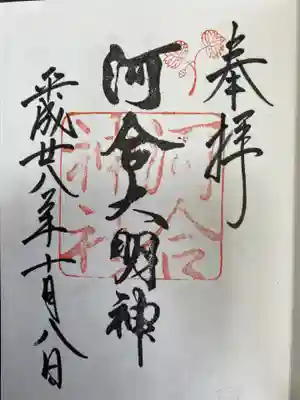 奉拝
河合大明神
河合神社
平成廿八年十月八日